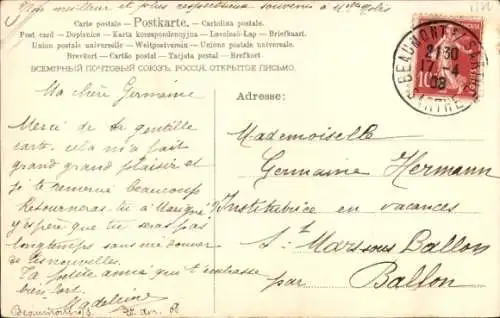 Mon meilleur et plus respectueux souvenir à
Carte postale – Postkarte. – Cartolina postale
Post card – Dopisnice – Karta korespondencyjna – Levelező-Lap – Briefkaart
Union postale universelle – Weltpostverein – Unione postale universale
Brevkort – Cartão postal – Tarjeta postal – Brefkort
ВСЕМІРНЫЙ ПОЧТОВЫЙ СОЮЗЪ. РОССІЯ. ОТКРЫТОЕ ПИСЬМО.
BEAUMONT
21 30
17 -4
08
SARTHE
10
Ma chère Germaine
Merci de ta gentille
carte, cela m'a fait
grand grand plaisir et
je te remercie beaucoup
Retourneras-tu à Marigné?
J'espère que tu seras pas
longtemps sans me donner
de tes nouvelles.
Ta petite amie qui t'embrasse
bien fort.
Madeleine
Beaumont s/S. avr. 08
Adresse:
Mademoiselle
Germaine Hermann
Institutrice en vacances
St Mars sous Ballon
par Ballon